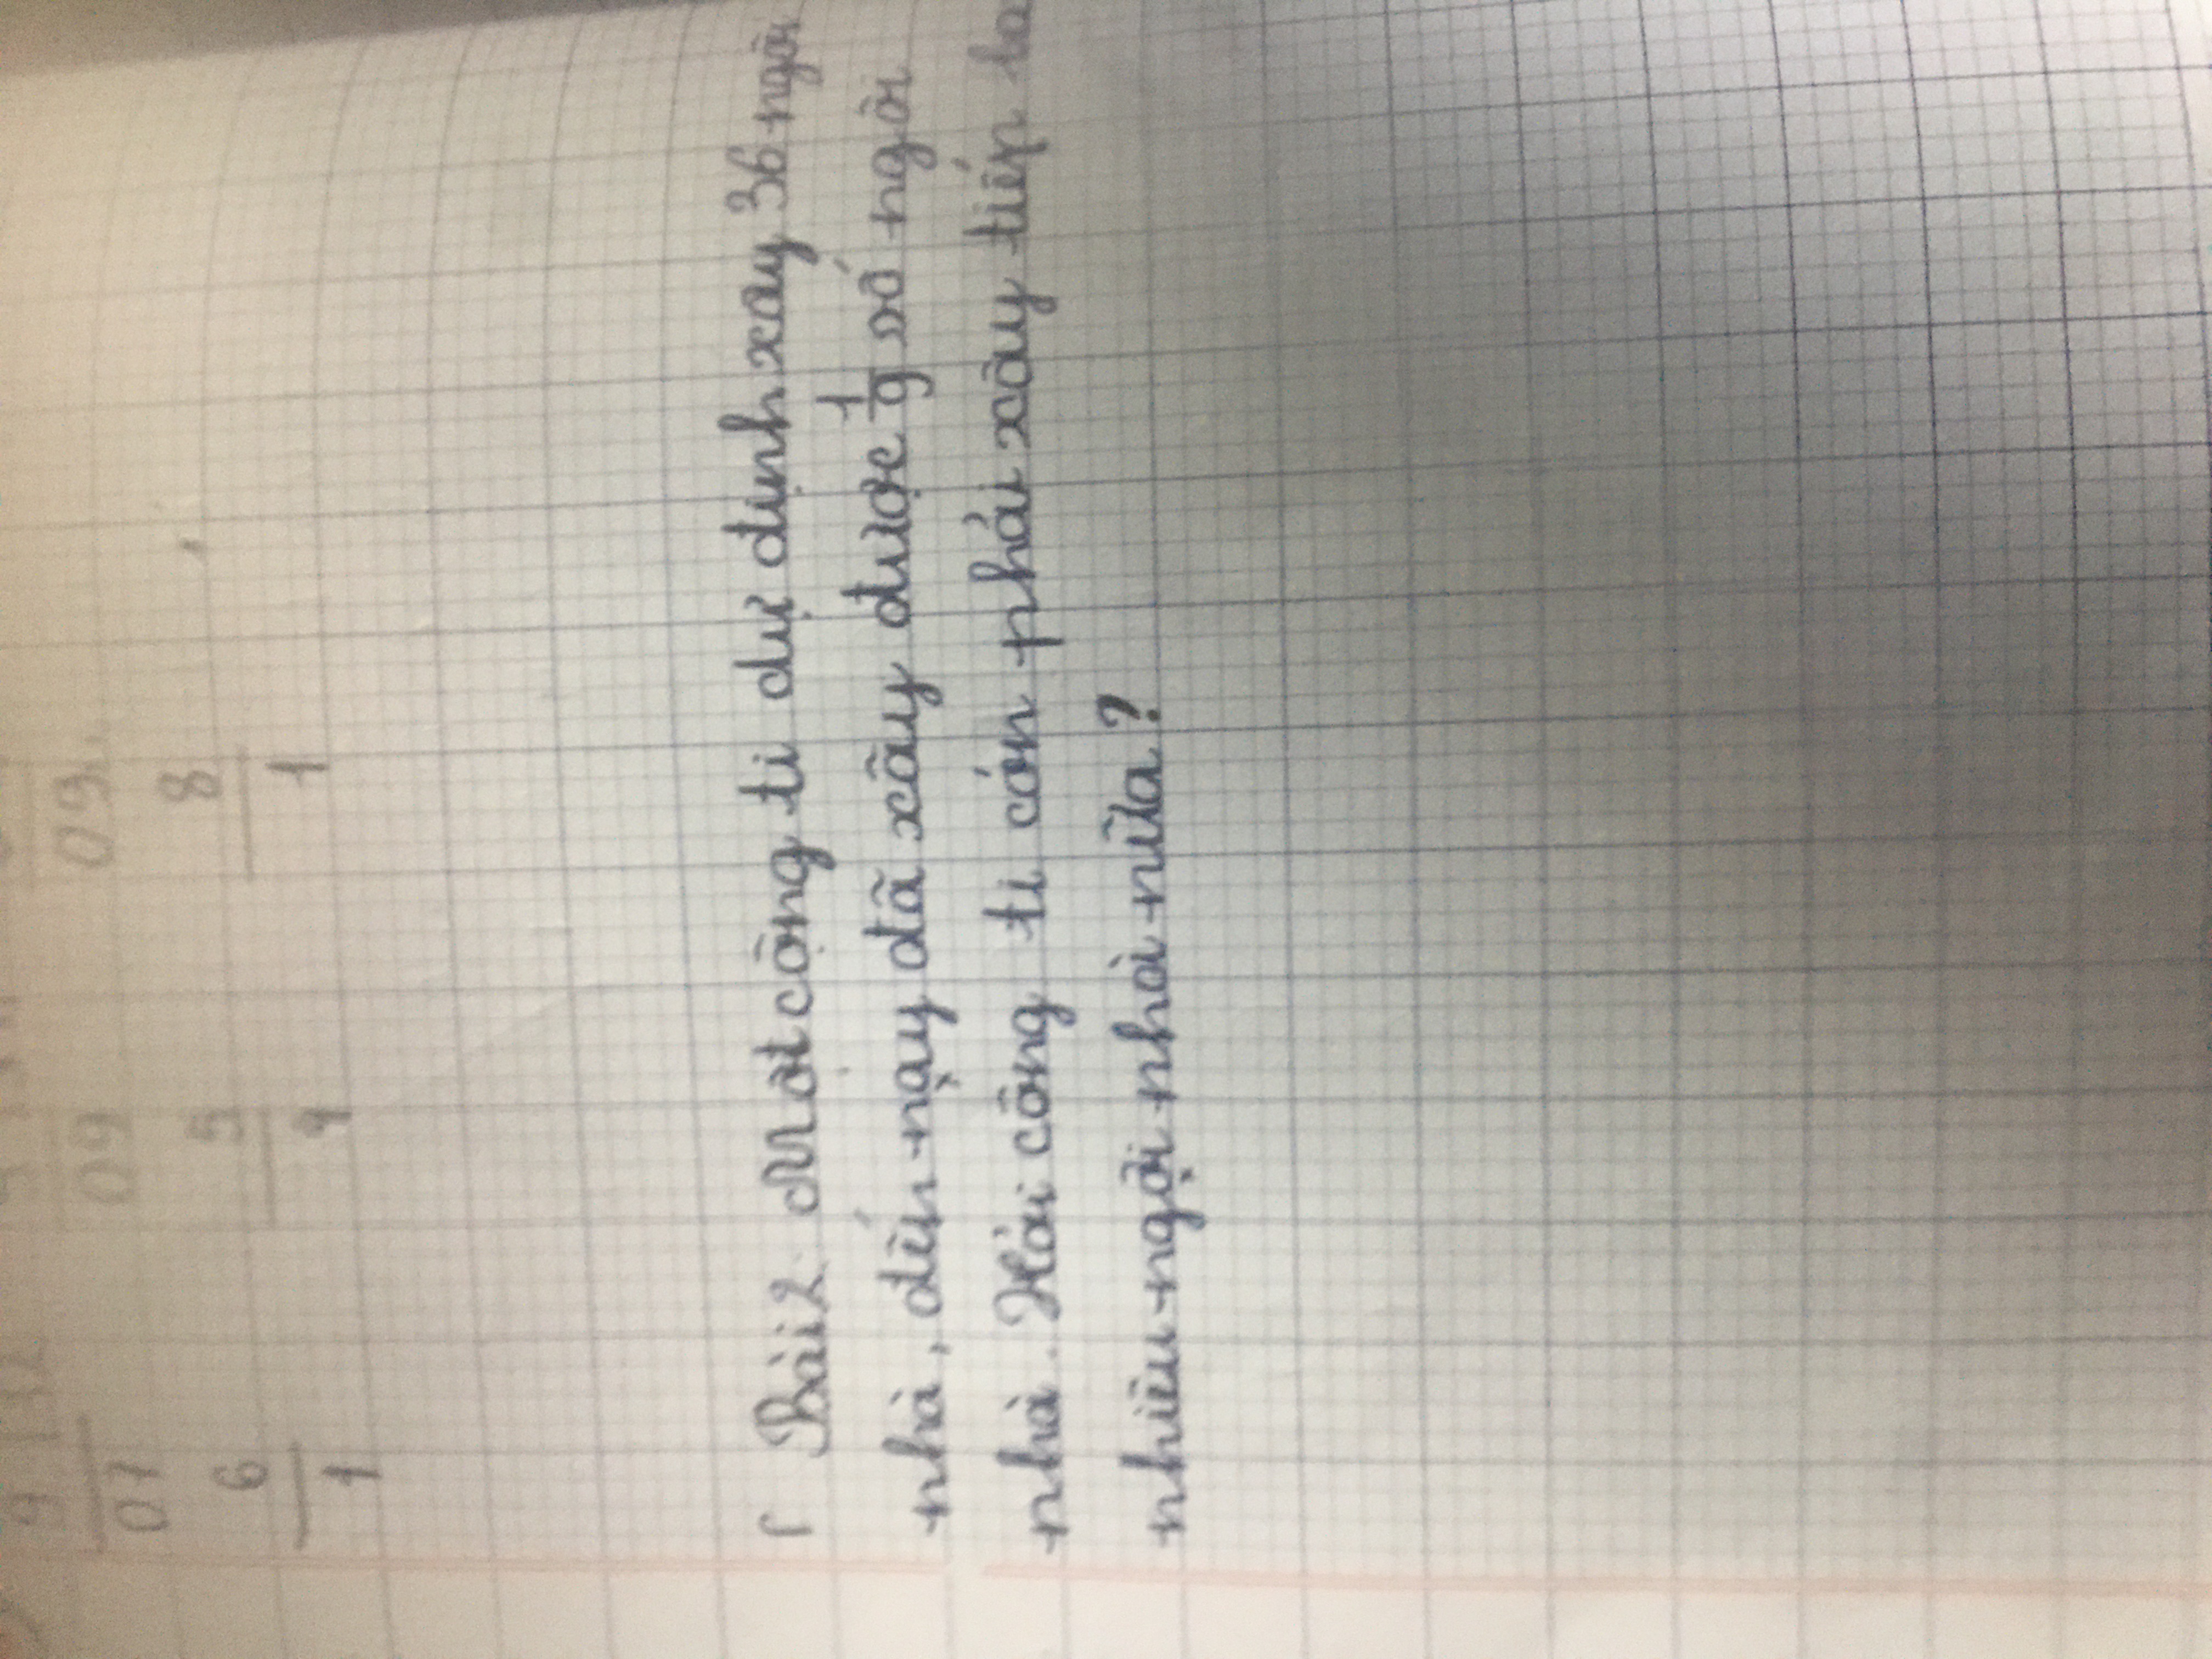 9 132
07
6
1
09
5
4
09
8
1
Bài 2. Một công ti dự định xây 36 ngôi
nhà, đến nay đã xây được 1/9 số ngôi
nhà. Hỏi công ti còn phải xây tiếp ba
nhiêu ngôi nhà nữa?